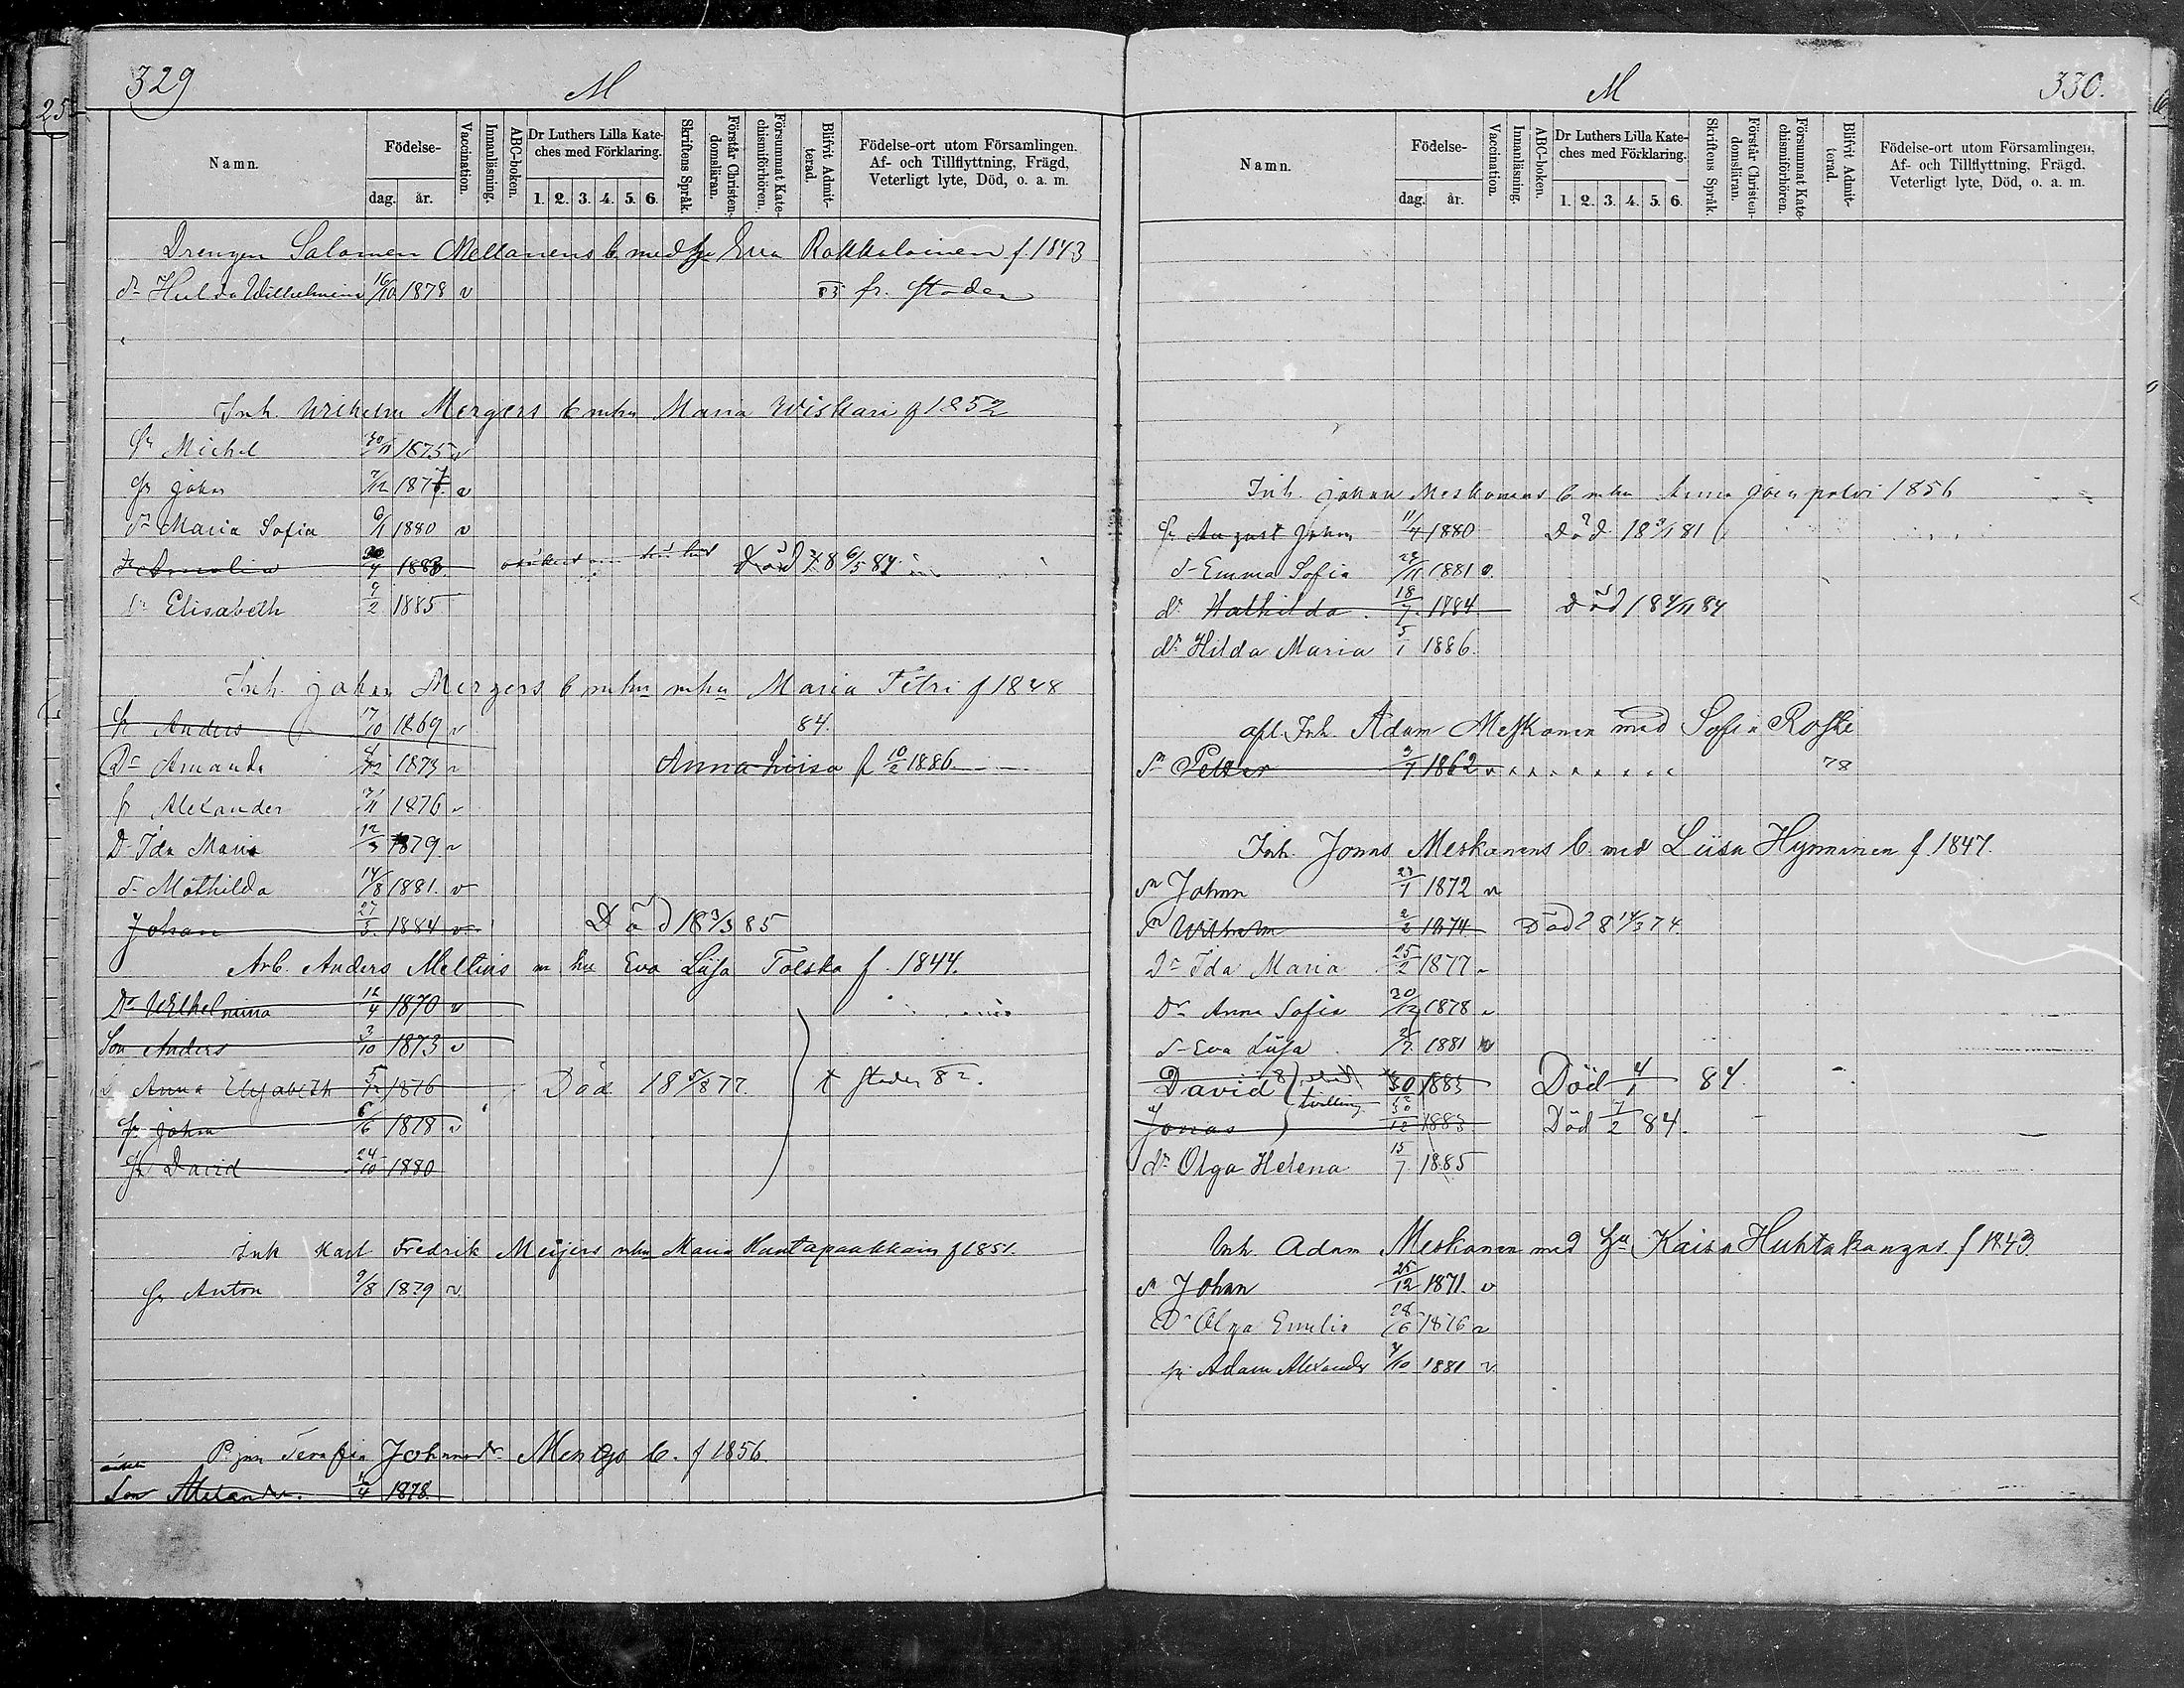 329
M
Namn.
Födelse-
dag.
år.
Vaccination.
Innanläsning.
ABC-boken.
Dr Luthers Lilla Kate-
ches med Förklaring.
1. 2. 3. 4. 5. 6.
Skriftens Språk.
Förstår Christen-
domsläran.
Försummat Kate-
chismiförhören.
Blifvit Admit-
terad.
Födelse-ort utom Församlingen.
Af- och Tillflyttning, Frägd,
Veterligt lyte, Död, o. a. m.
Drengen Salomon b. med Eva f. 1843
dr Hulda Wilhelmina 16/10 1878 v 83 fr. staden
Inh. Wilhelm Mergers b mhu Maria Wiskari f 1852
Michel 30/11 1875 v
Johan 7/12 1877 v
dr Maria Sofia 6/1 1880 v
Amalia 1883 Död 18 6/5 84
dr Elisabeth 9/2 1885
Inh. Johan Mergers b mhu mhu Maria Petri f 1848
Anders 17/10 1869 v 84.
Dr Amanda 1873 v Anna Lovisa f 10/2 1886
Alexander 7/11 1876 v
D Ida Maria 12/3 1879 v
d Mathilda 14/8 1881. v
Johan 27/5 1884 v Död 18 3/3 85
Arb. Anders Mellins m hu Eva Lüsa Tolska f. 1844.
Dr Wilhelmina 12/4 1870 v
Son Anders 3/10 1873 v
Anna Elisabeth 5/12 1876 Död 18 5/8 77. t staden 82.
Johan 6/6 1878 v
David 24/10 1880
Inh Karl Fredrik Meijers mhu Maria f 1851.
Anton 9/8 1879 v
Johansdr b. f 1856
Son 12/4 1878.
M
330.
Namn.
Födelse-
dag.
år.
Vaccination.
Innanläsning.
ABC-boken.
Dr Luthers Lilla Kate-
ches med Förklaring.
1. 2. 3. 4. 5. 6.
Skriftens Språk.
Förstår Christen-
domsläran.
Försummat Kate-
chismiförhören.
Blifvit Admit-
terad.
Födelse-ort utom Församlingen,
Af- och Tillflyttning, Frägd,
Veterligt lyte, Död, o. a. m.
Inh. Johan Meskanens b mhu Anna 1856
August Johan 11/4 1880 Död 18 3/1 81
d Emma Sofia 29/11 1881 v.
dr Mathilda 18/7 1884 Död 18 4/11 84
dr Hilda Maria 5/1 1886.
afl. Inh. Adam Meskanen med Sofia Roske
sn Petter 3/7 1862 78
Inh. Jonas Meskanens b. med Liisa Hynninen f. 1847.
sn Johan 23/1 1872 v
sn Wilhelm 2/2 1874 Död 18 14/3 74.
Dr Ida Maria 25/2 1877 v
Dr Anna Sofia 30/12 1878 v
d Eva Lüsa 1881 v
David 30/12 1883 Död 4/1 84.
tvilling
Jonas 30/12 1883 Död 7/2 84.
dr Olga Helena 15/7 1885
Inh. Adam Meskanen med hu Kaisa Huhtakangas f 1843
sn Johan 25/12 1871. v
Dr Olga Emilia 28/6 1876 v
Adam Alexander 4/10 1881 v